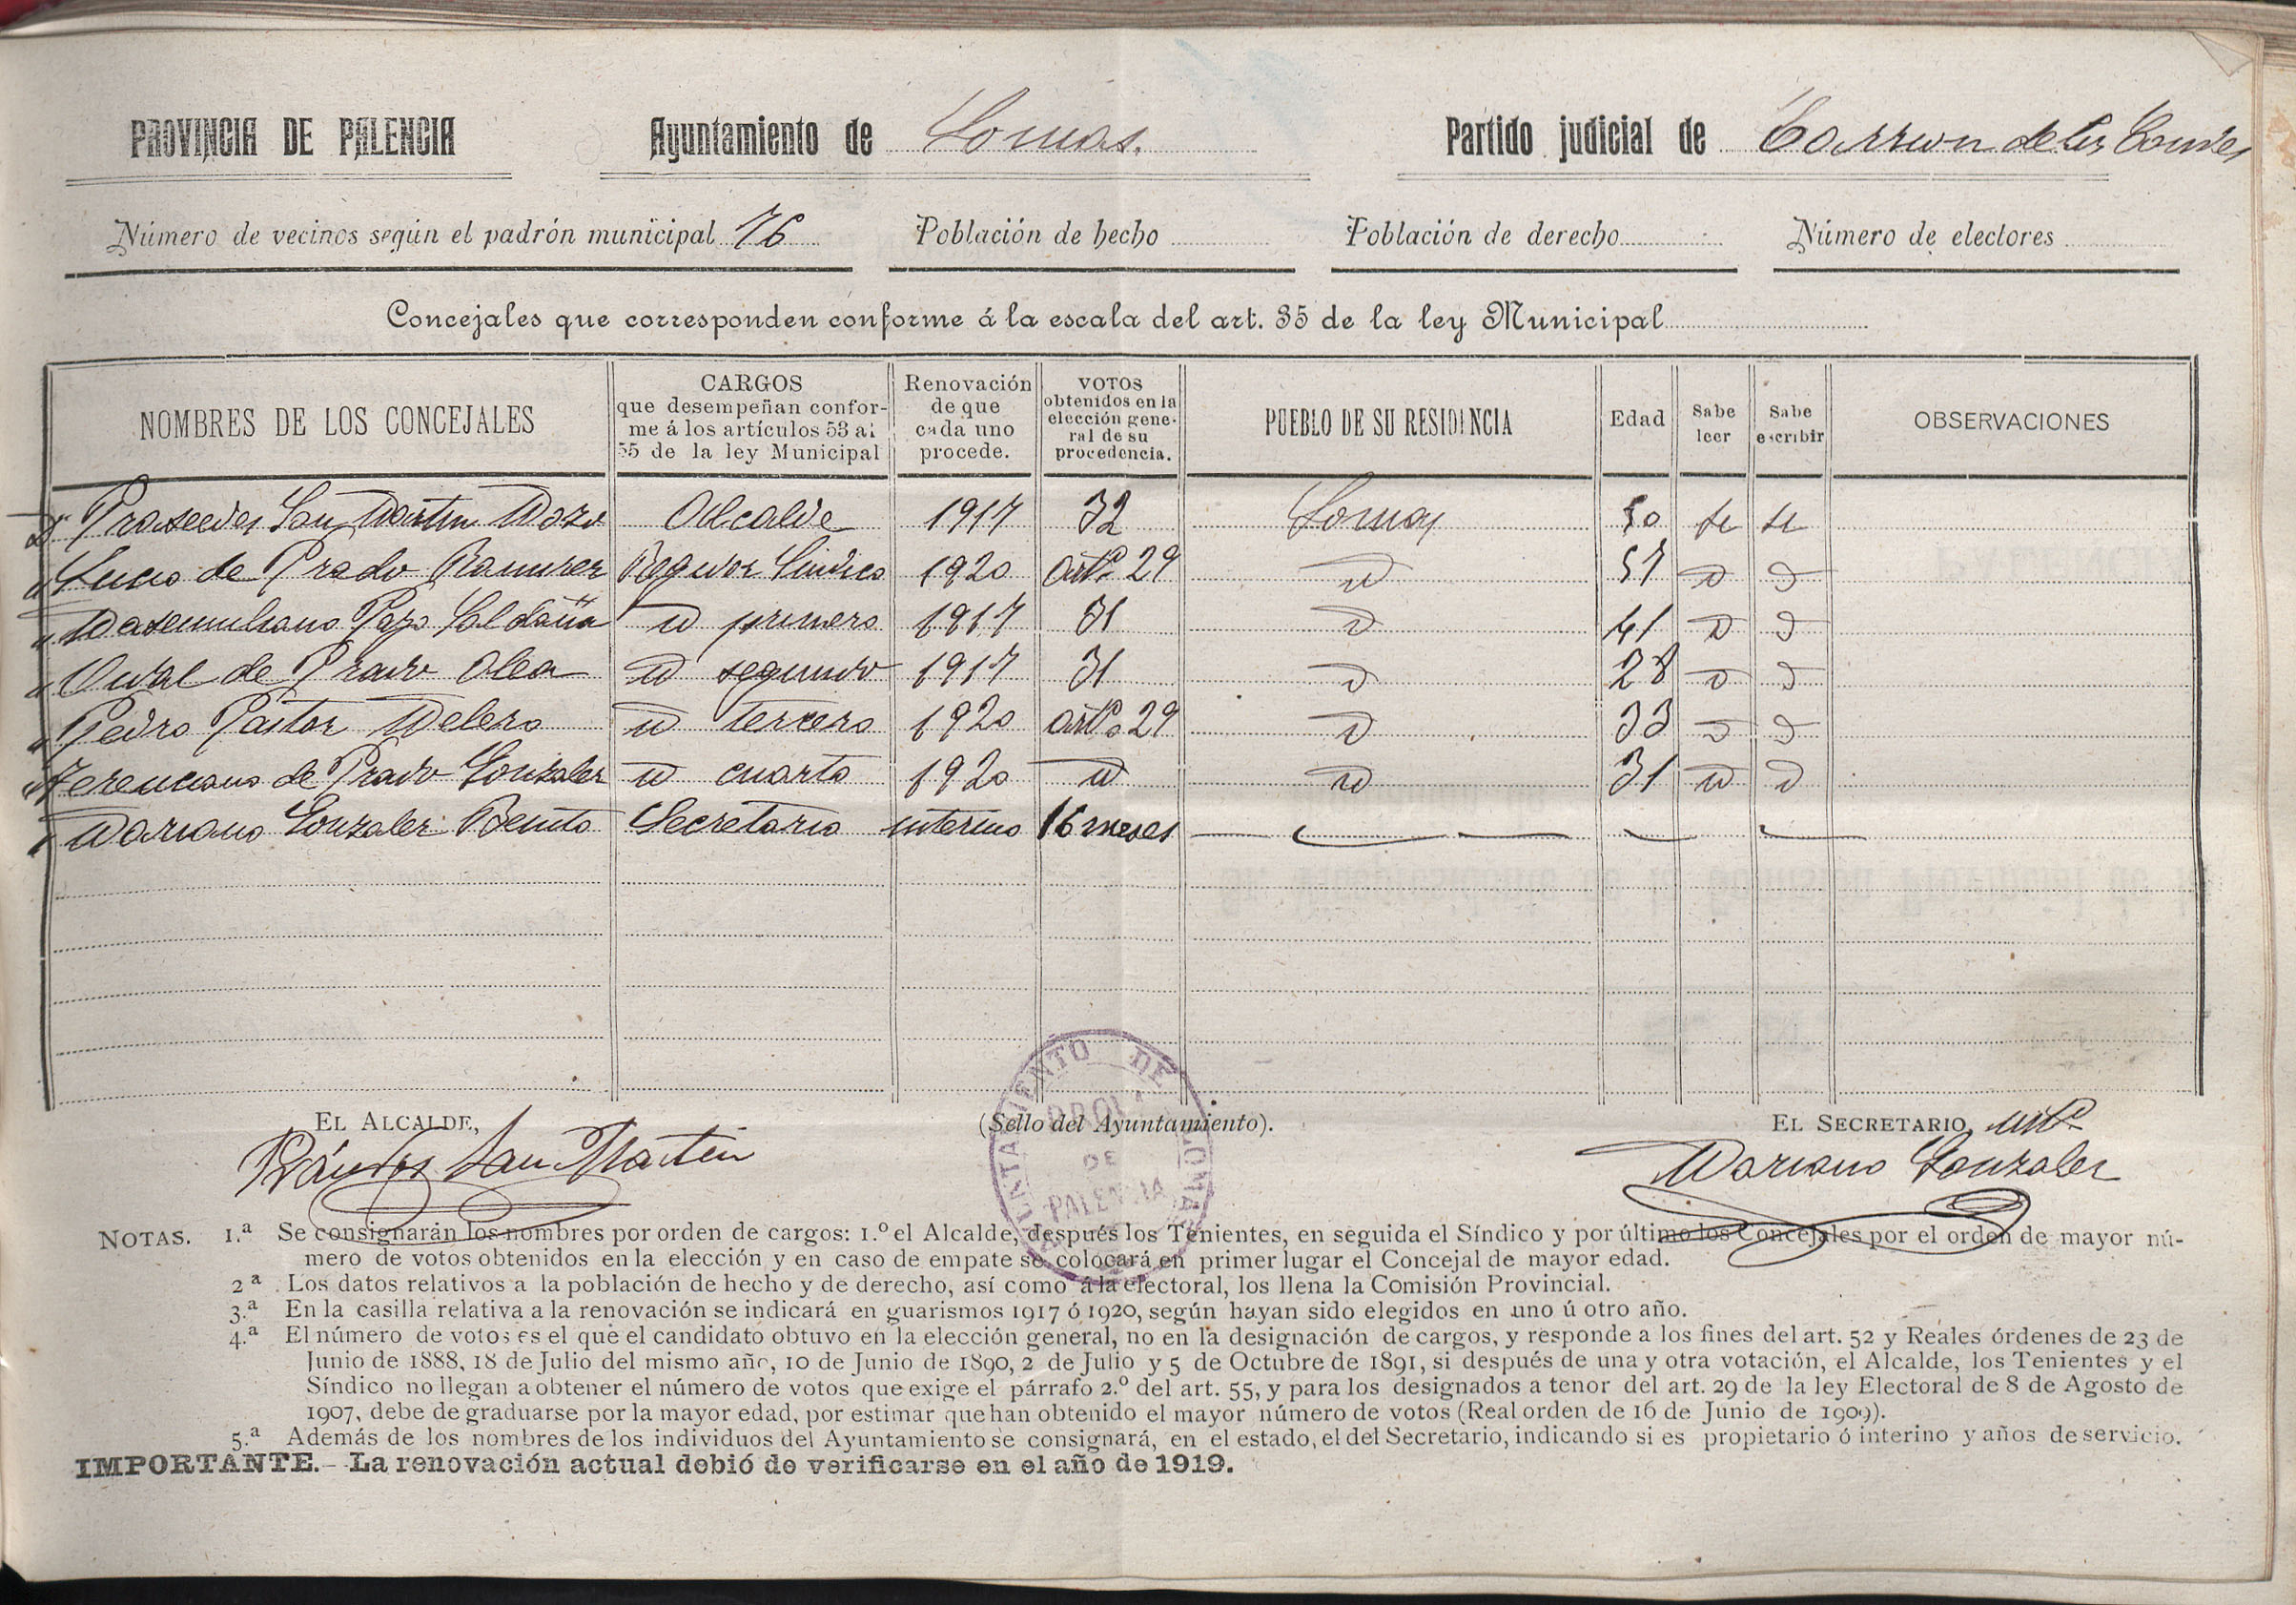 PROVINCIA DE PALENCIA Ayuntamiento de Lomas. Partido judicial de Carrion de los Condes
Número de vecinos según el padrón municipal 76 Población de hecho Población de derecho Número de electores
Concejales que corresponden conforme á la escala del art. 35 de la ley Municipal
NOMBRES DE LOS CONCEJALES
CARGOS
que desempeñan confor-
me á los artículos 53 al
55 de la ley Municipal
Renovación
de que
cada uno
procede.
VOTOS
obtenidos en la
elección gene-
ral de su
procedencia.
PUEBLO DE SU RESIDENCIA
Edad
Sabe
leer
Sabe
escribir
OBSERVACIONES
D. Praxedes San Martin Alcalde 1917 32 Lomas 50 si si
" Lucio de Prado Ramirez Regidor Sindico 1920 artº 29 id 57 id id
" Maximiliano Saldaña id primero 1917 31 id 41 id id
" Vidal de Prado Olea id segundo 1917 31 id 28 id id
" Pedro Pastor Melero id tercero 1920 artº 29 id 33 id id
" Terenciano de Prado Gonzalez id cuarto 1920 id id 31 id id
" Mariano Gonzalez Benito Secretario interino 16 meses
EL ALCALDE, (Sello del Ayuntamiento). EL SECRETARIO, intº
San Martin Mariano Gonzalez
AYUNTAMIENTO DE LOMAS
PROVª
DE
PALENCIA
NOTAS. 1.ª Se consignarán los nombres por orden de cargos: 1.º el Alcalde, después los Tenientes, en seguida el Síndico y por último los Concejales por el orden de mayor nú-
mero de votos obtenidos en la elección y en caso de empate se colocará en primer lugar el Concejal de mayor edad.
2ª Los datos relativos a la población de hecho y de derecho, así como á la electoral, los llena la Comisión Provincial.
3.ª En la casilla relativa a la renovación se indicará en guarismos 1917 ó 1920, según hayan sido elegidos en uno ú otro año.
4.ª El número de votos es el que el candidato obtuvo en la elección general, no en la designación de cargos, y responde a los fines del art. 52 y Reales órdenes de 23 de
Junio de 1888, 18 de Julio del mismo año, 10 de Junio de 1890, 2 de Julio y 5 de Octubre de 1891, si después de una y otra votación, el Alcalde, los Tenientes y el
Síndico no llegan a obtener el número de votos que exige el párrafo 2.º del art. 55, y para los designados a tenor del art. 29 de la ley Electoral de 8 de Agosto de
1907, debe de graduarse por la mayor edad, por estimar que han obtenido el mayor número de votos (Real orden de 16 de Junio de 1909).
5.ª Además de los nombres de los individuos del Ayuntamiento se consignará, en el estado, el del Secretario, indicando si es propietario ó interino y años de servicio.
IMPORTANTE.- La renovación actual debió de verificarse en el año de 1919.